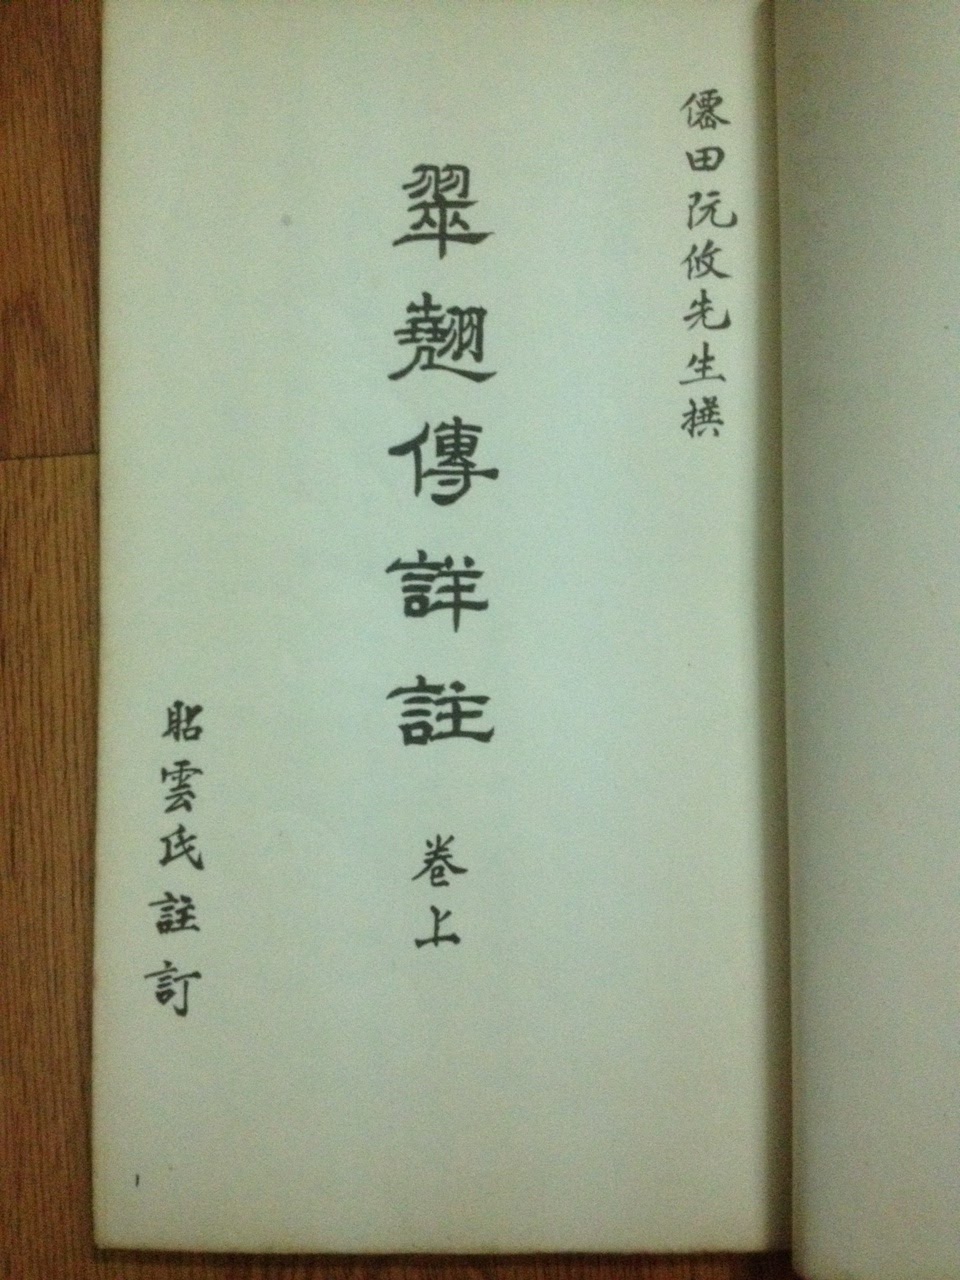 僊田阮攸先生撰
翠翹傳詳註 卷上
昭雲氏註訂
1